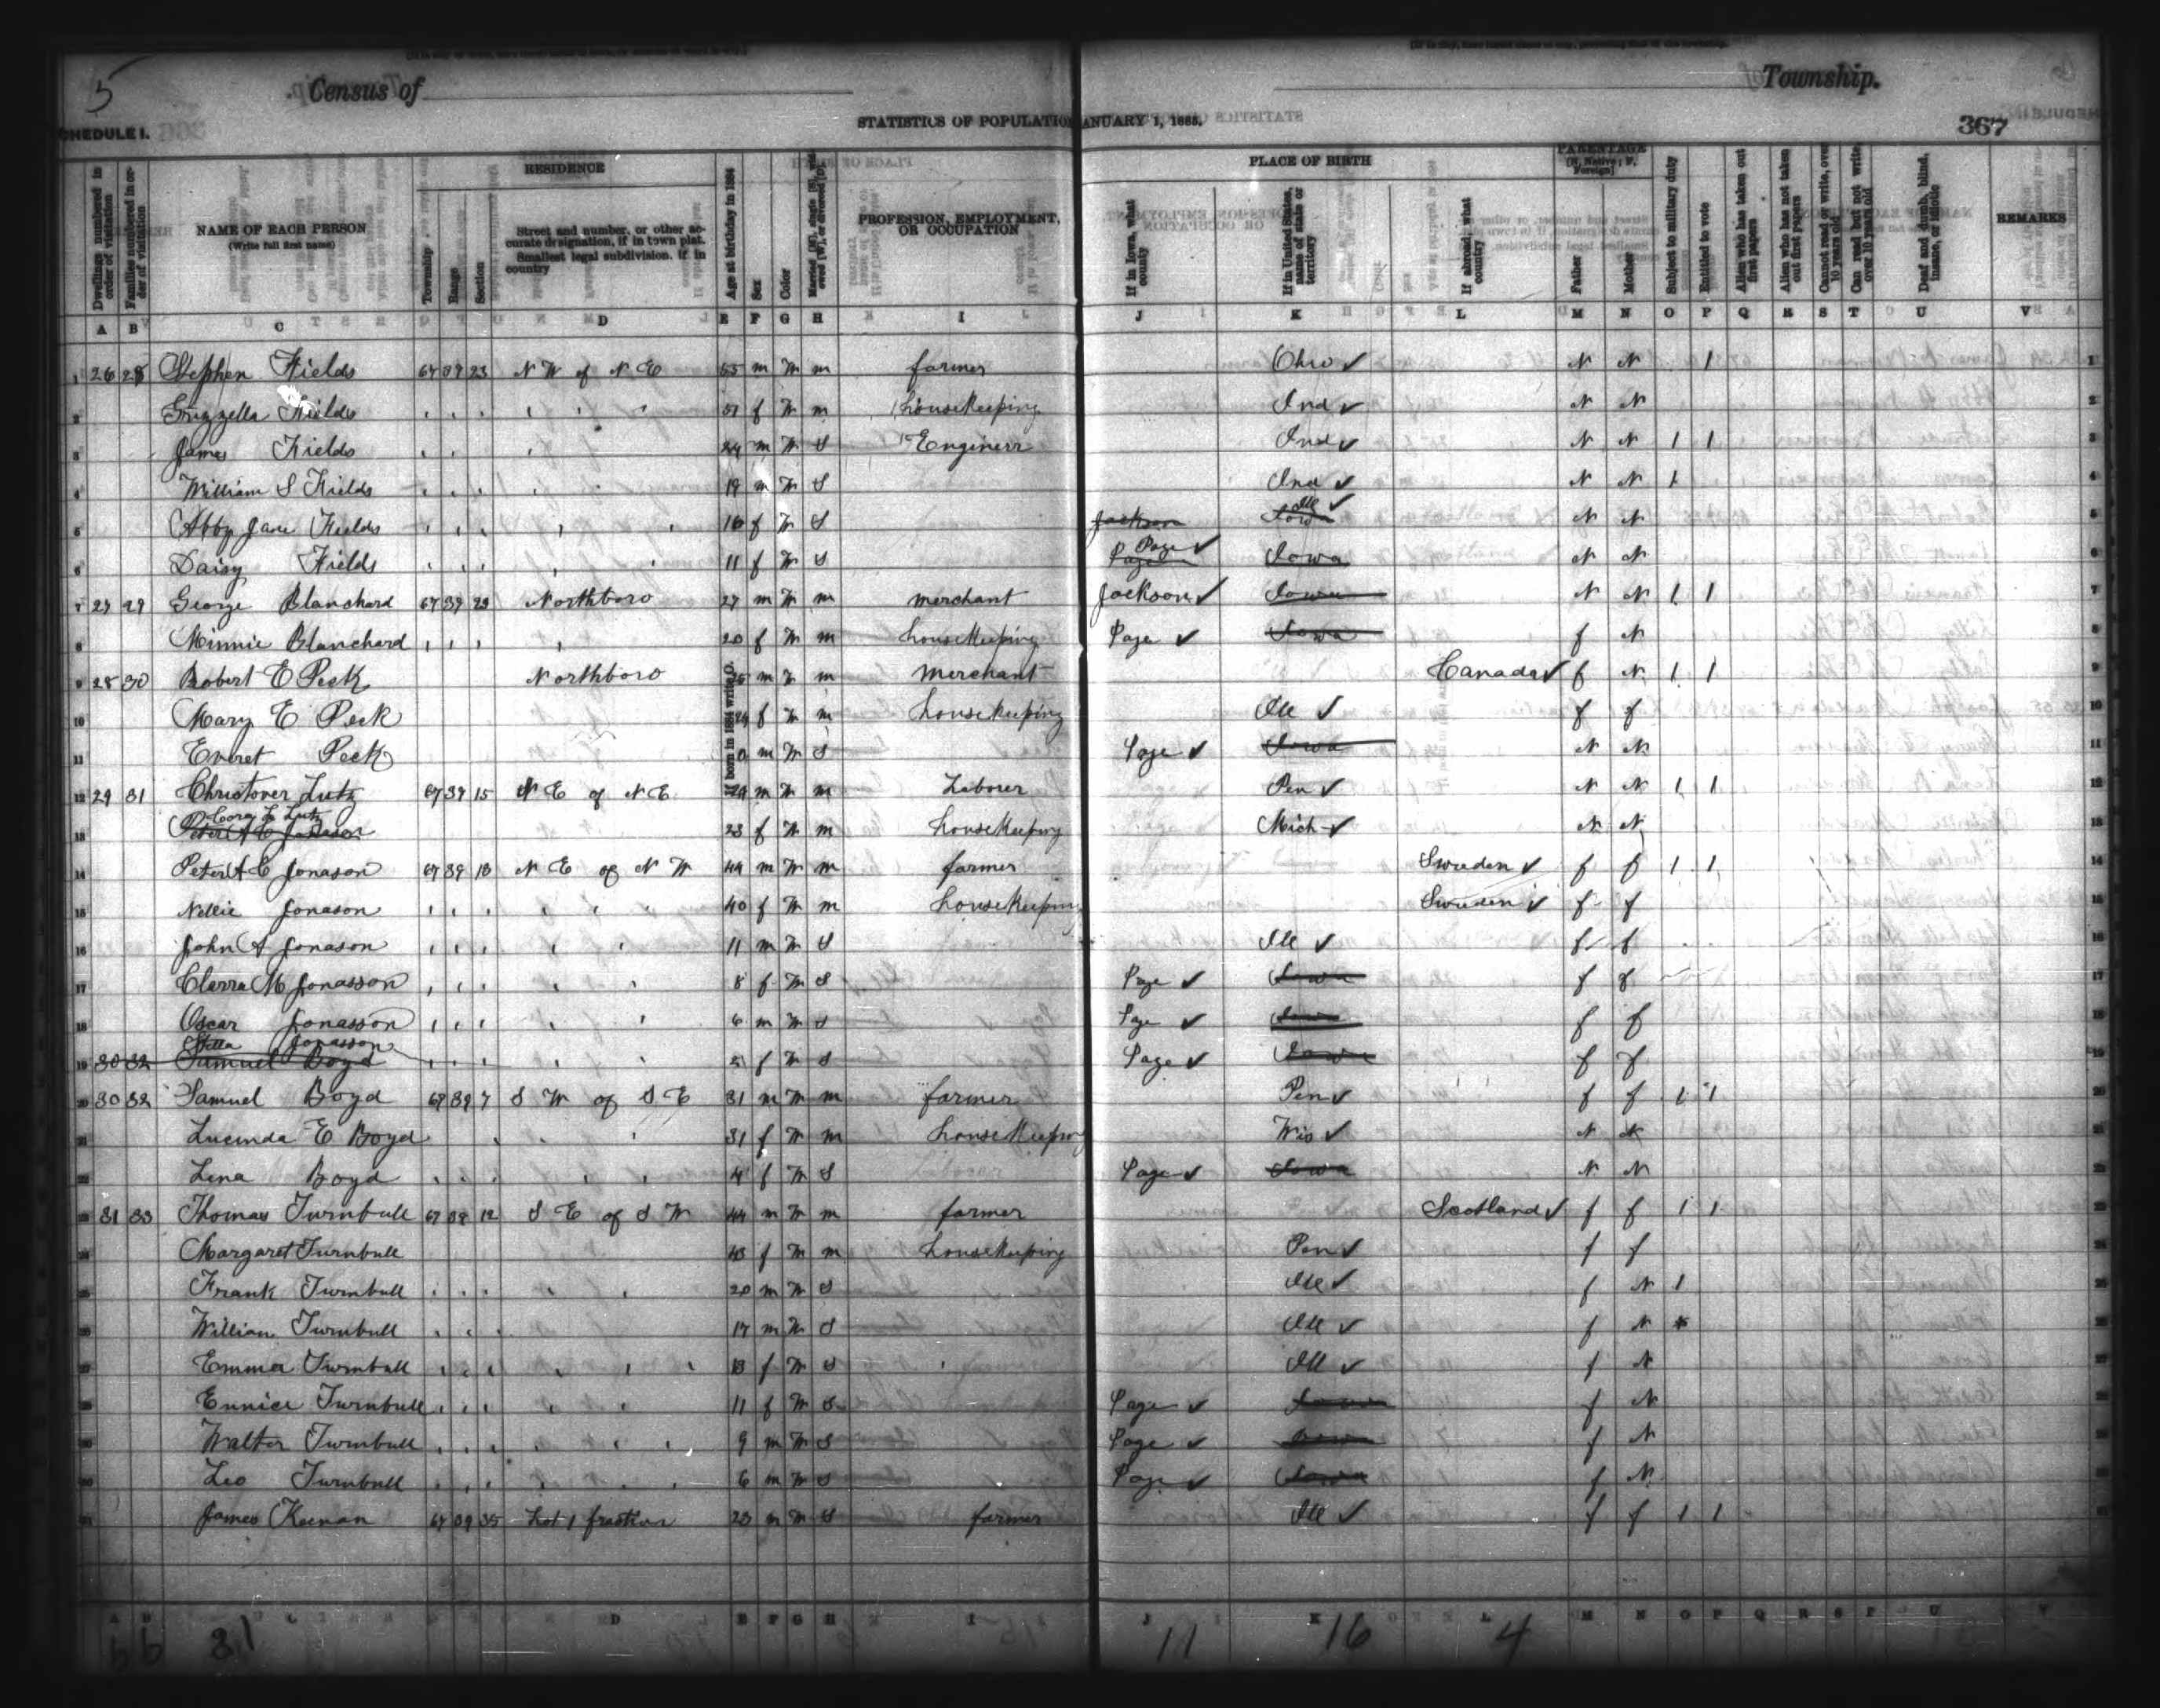 5
Census of
Township.
SCHEDULE I.
STATISTICS OF POPULATION JANUARY 1, 1885.
367
RESIDENCE
PLACE OF BIRTH
PARENTAGE [N, Native; F, Foreign]
Dwellings numbered in order of visitation
Families numbered in order of visitation
NAME OF EACH PERSON (Write full first name)
Township
Range
Section
Street and number, or other accurate designation, if in town plat. Smallest legal subdivision, if in country
Age at birthday in 1884
If born in 1884 write 0.
Sex
Color
Married [M], single [S], widowed [W], or divorced [D].
PROFESSION, EMPLOYMENT, OR OCCUPATION
If in Iowa, what county
If in United States, name of state or territory
If abroad, what country
Father
Mother
Subject to military duty
Entitled to vote
Alien who has taken out first papers
Alien who has not taken out first papers
Cannot read or write, over 10 years old
Can read but not write, over 10 years old
Deaf and dumb, blind, insane, or idiotic
REMARKS
A B C D E F G H I J K L M N O P Q R S T U V
1 26 28 Stephen Fields 67 39 23 N W of N E 55 m W m farmer Ohio ✓ N N 1 1
2 Grizzella Fields " " " " " " 51 f W m housekeeping Ind ✓ N N 2
3 James Fields " " " " 24 m W S Engineer Ind ✓ N N 1 1 3
4 William S Fields " " " 19 m W S Ind ✓ N N 1 4
5 Abby Jane Fields " " " " " 16 f W S Jackson Iowa Ill ✓ N N 5
6 Daisy Fields " " " " " 11 f W S Page ✓ Iowa N N 6
7 27 29 George Blanchard 67 39 29 Northboro 27 m W m merchant Jackson ✓ Iowa N N 1 1 7
8 Minnie Blanchard " " " " 20 f W m housekeeping Page ✓ Iowa f N 8
9 28 30 Robert E Peck Northboro 25 m W m merchant Canada ✓ f N 1 1 9
10 Mary E Peck 24 f W m housekeeping Ill ✓ f f 10
11 Everet Peck 0 m W S Page ✓ Iowa N N 11
12 29 31 Christover Lutz 67 39 15 N E of N E 29 m W m Laborer Pen ✓ N N 1 1 12
Cora L Lutz
13 Peter A C Jonason 23 f W m housekeeping Mich ✓ N N 13
14 Peter A C Jonason 67 39 13 N E of N W 44 m W m farmer Sweden ✓ f f 1 1 14
15 Nellie Jonason " " " " " " 40 f W m housekeeping Sweden ✓ f f 15
16 John A Jonason " " " " " 11 m W S Ill ✓ f f 16
17 Clarra M Jonasson " " " " " 8 f W S Page ✓ Iowa f f 17
18 Oscar Jonasson " " " " " 6 m W S Page ✓ Iowa f f 18
Stella Jonasson
19 30 32 Samuel Boyd " " " " " f W S Page ✓ Iowa f f 19
20 30 32 Samuel Boyd 67 39 7 S W of S E 31 m W m farmer Pen ✓ f f 1 1 20
21 Lucinda E Boyd " " " 31 f W m housekeeping Wis ✓ N N 21
22 Lena Boyd " " " " " 4 f W S Page ✓ Iowa N N 22
23 31 33 Thomas Turnbull 67 39 12 S E of S W 44 m W m farmer Scotland ✓ f f 1 1 23
24 Margaret Turnbull 43 f W m housekeeping Pen ✓ f f 24
25 Frank Turnbull " " " " " 20 m W S Ill ✓ f N 1 25
26 William Turnbull " " " 17 m W S Ill ✓ f N 26
27 Emma Turnbull " " " " " " 13 f W S Ill ✓ f N 27
28 Eunice Turnbull " " " " " 11 f W S Page ✓ Iowa f N 28
29 Walter Turnbull " " " " " " 9 m W S Page ✓ Iowa f N 29
30 Leo Turnbull " " " " " " 6 m W S Page ✓ Iowa f N 30
31 James Keenan 67 39 35 Lot 1 fraction 23 m W S farmer Ill ✓ f f 1 1 31
A B C D E F G H I J K L M N O P Q R S T U V
6 6 31 11 16 4